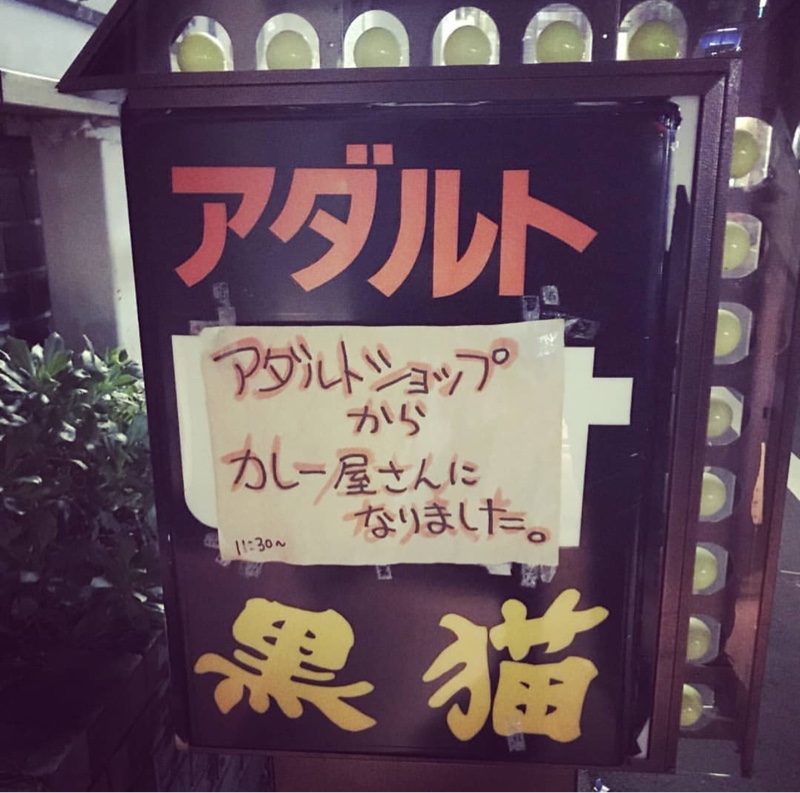 アダルト
アダルトショップ
から
カレー屋さんに
なりました。
11:30~
黒猫